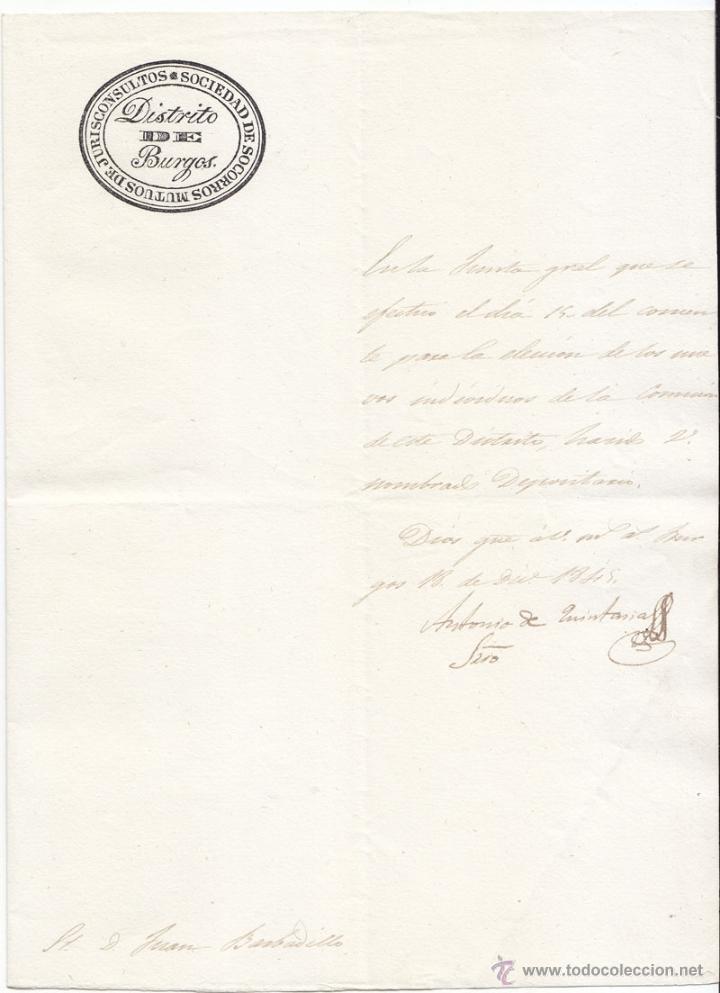 SOCIEDAD DE SOCORROS MUTUOS DE JURISCONSULTOS
Distrito
DE
Burgos.
En la Junta gral que se
efectuo el dia 15 del corrien
te para la eleccion de los nue
vos individuos de la Comision
de este Distrito, V.
nombrado Depositario.
Dios gue á V. ms as. Bur
gos 18 de Dice 1845.
Antonio de Quintana
Srio
Sr. D. Juan Barbadillo
www.todocoleccion.net